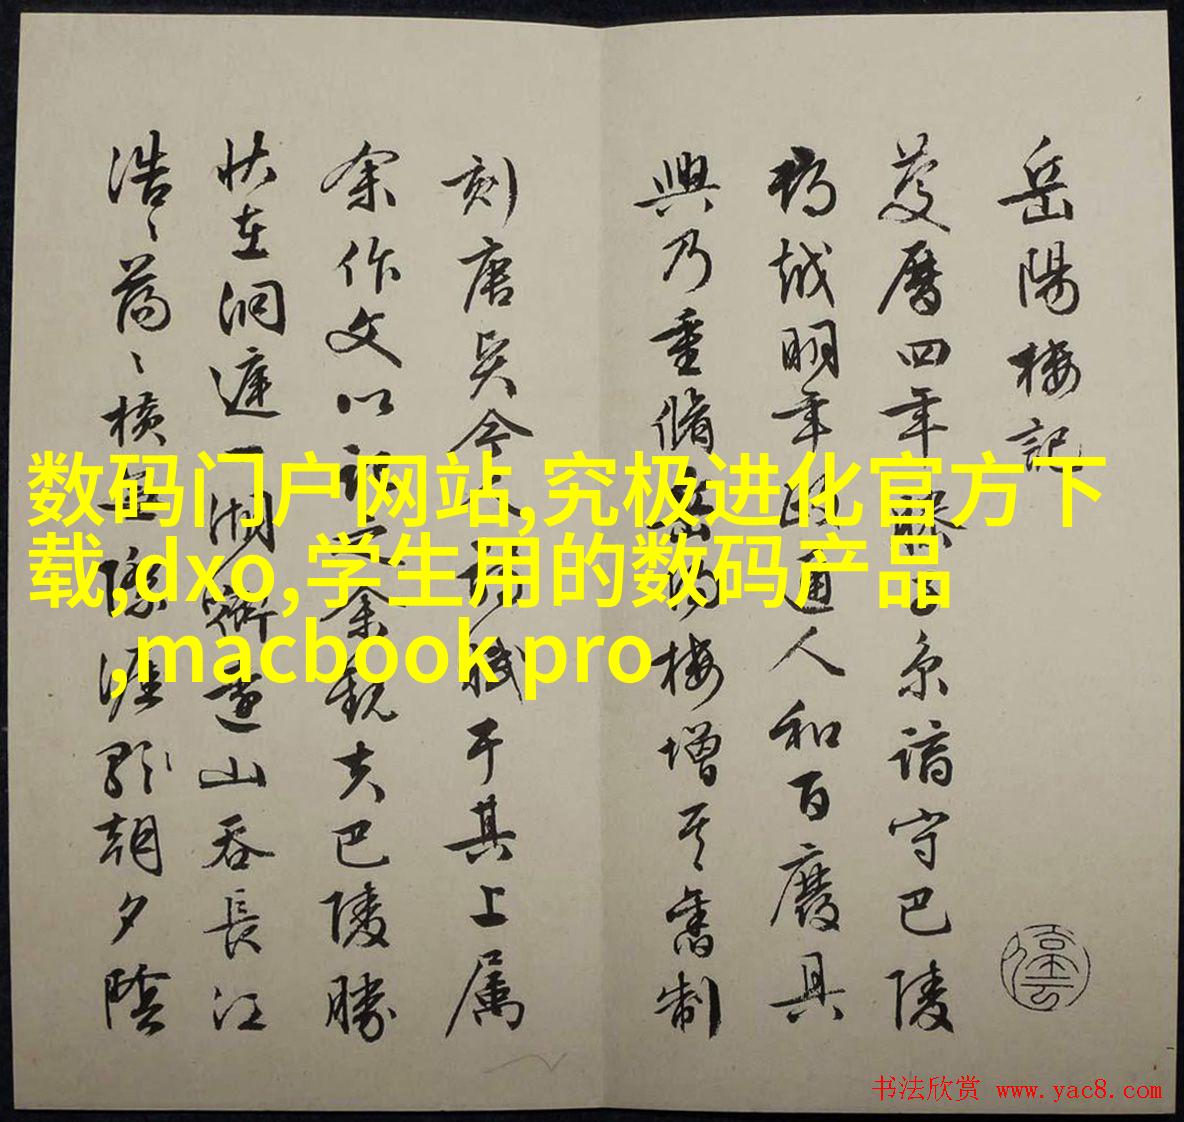 岳陽樓記
慶曆四年滕子京謫守巴陵
郡越明年政通人和百廢具
興乃重脩岳陽樓增其舊制
刻唐賢今人詩賦于其上屬
余作文以記之余觀夫巴陵勝
狀在洞庭一湖銜遠山吞長江
浩〻蕩〻橫無際涯朝夕陰
数码门户网站,究极进化官方下
载,dxo,学生用的数码产品
,macbook pro
书法欣赏 www.yac8.com